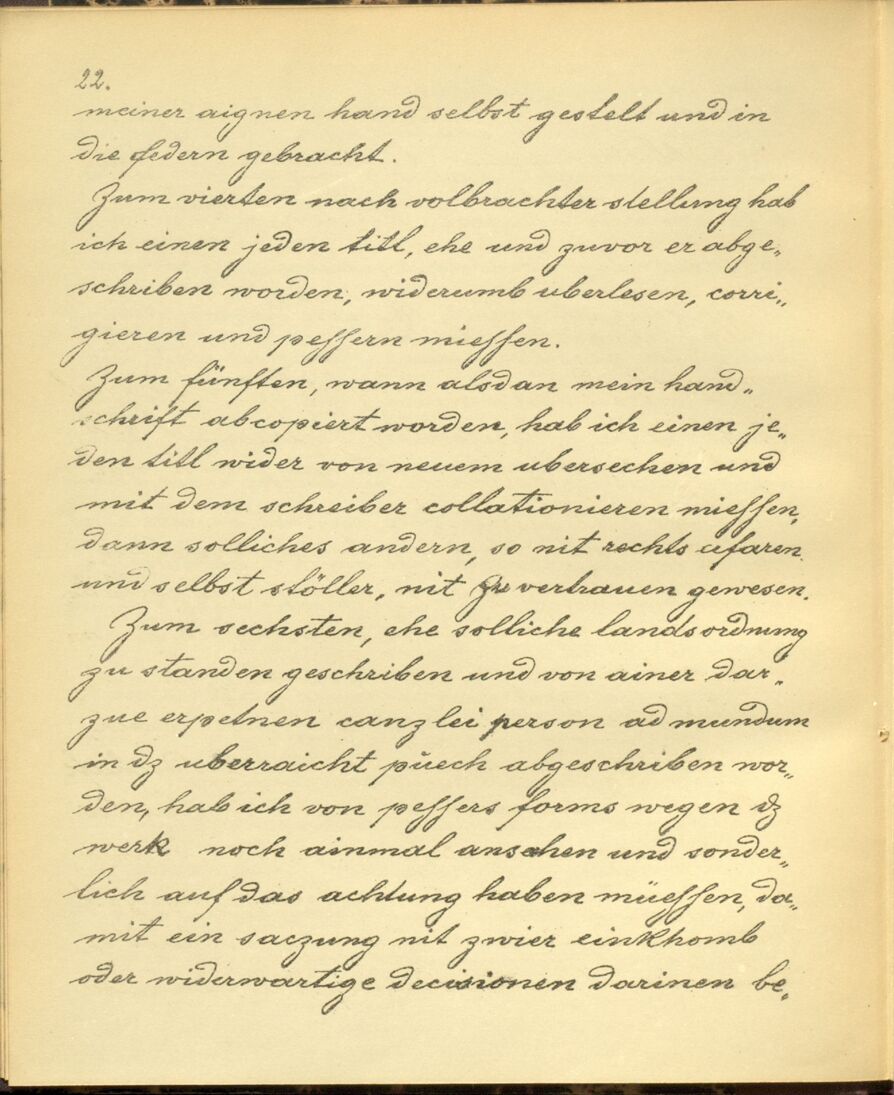 22.
meiner aignen hand selbst gestelt und in
die federn gebracht.
Zum vierten nach volbrachter stellung hab
ich einen jeden titl, ehe und zuvor er abge„
schriben worden, widerumb uberlesen, corri„
gieren und pessern miessen.
Zum fünften, wann alsdan mein hand„
schrift abcopiert worden, hab ich einen je„
den titl wider von neuem ubersechen und
mit dem schreiber collationieren miessen,
dann solliches andern, so nit rechts
und selbst stöller, nit zu vertrauen gewesen.
Zum sechsten, ehe solliche landsordnung
zu standen geschriben und von ainer dar„
zue erpetnen canzlei person ad mundum
in dz uberraicht püech abgeschriben wor„
den, hab ich von pessers forms wegen dz
werk noch ainmal ansehen und sonder„
lich auf das achtung haben müessen, da„
mit ein saczung nit zwier einkhomb
oder widerwartige decisionen darinen be„